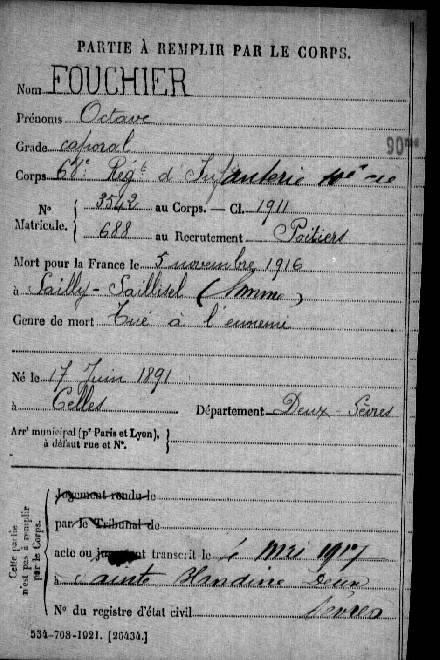 PARTIE À REMPLIR PAR LE CORPS.
Nom FOUCHIER
Prénoms Octave
Grade caporal
90me
Corps 68e Régt d'Infanterie
N° Matricule. { 3542 au Corps. — Cl. 1911
688 au Recrutement Poitiers
Mort pour la France le 5 novembre 1916
à Sailly-Saillisel (Somme)
Genre de mort Tué à l'ennemi
Né le 17 Juin 1891
à Celles Département Deux-Sèvres
Arrt municipal (pr Paris et Lyon), à défaut rue et N°. }
Cette partie n'est pas à remplir par le Corps.
Jugement rendu le
par le Tribunal de
acte ou jugement transcrit le 4 mai 1917
à Sainte Blandine Deux
Sèvres
N° du registre d'état civil
534-708-1921. [26434.]